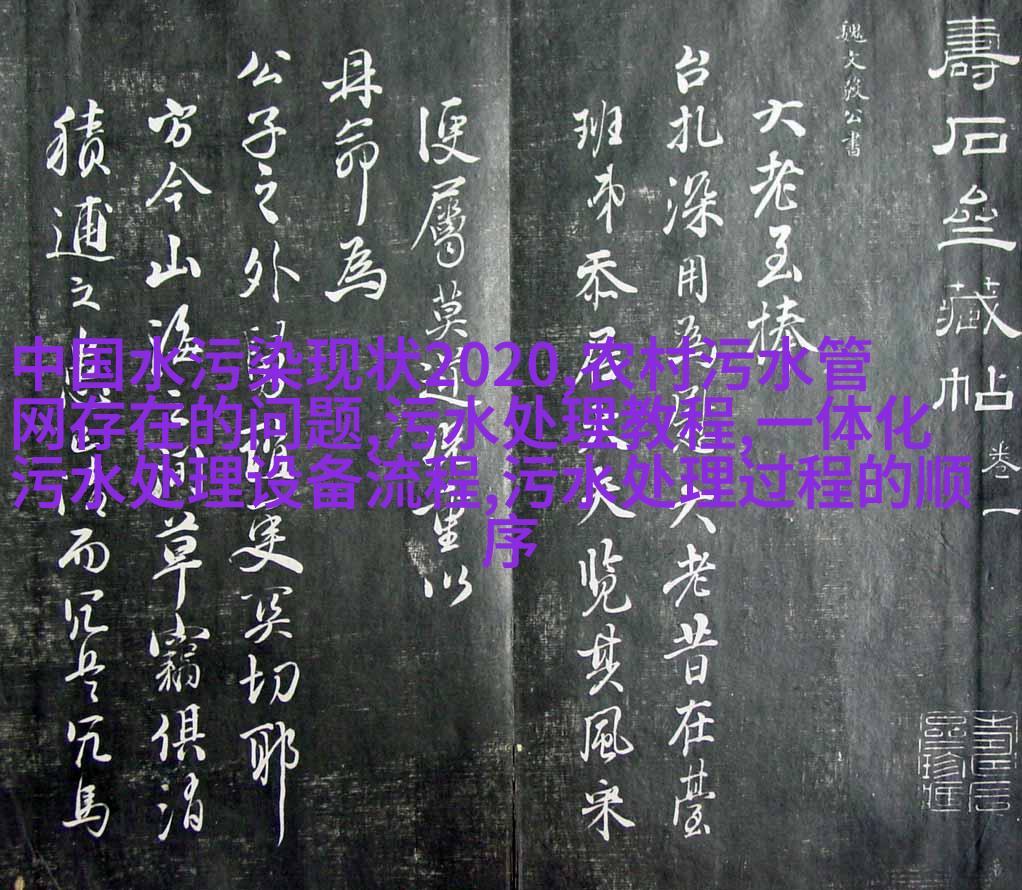 壽石亝藏帖 卷一
魏文毅公書
大老至捧
台扎深用為慰大老昔在臺
班弟忝居覽其風采
便屬莫逆重以
冄命為
公子之外更奚切耶
方今山海之草竊俱消
積逋之而冗兵冗馬
中国水污染现状2020,农村污水管
网存在的问题,污水处理教程,一体化
污水处理设备流程,污水处理过程的顺
序